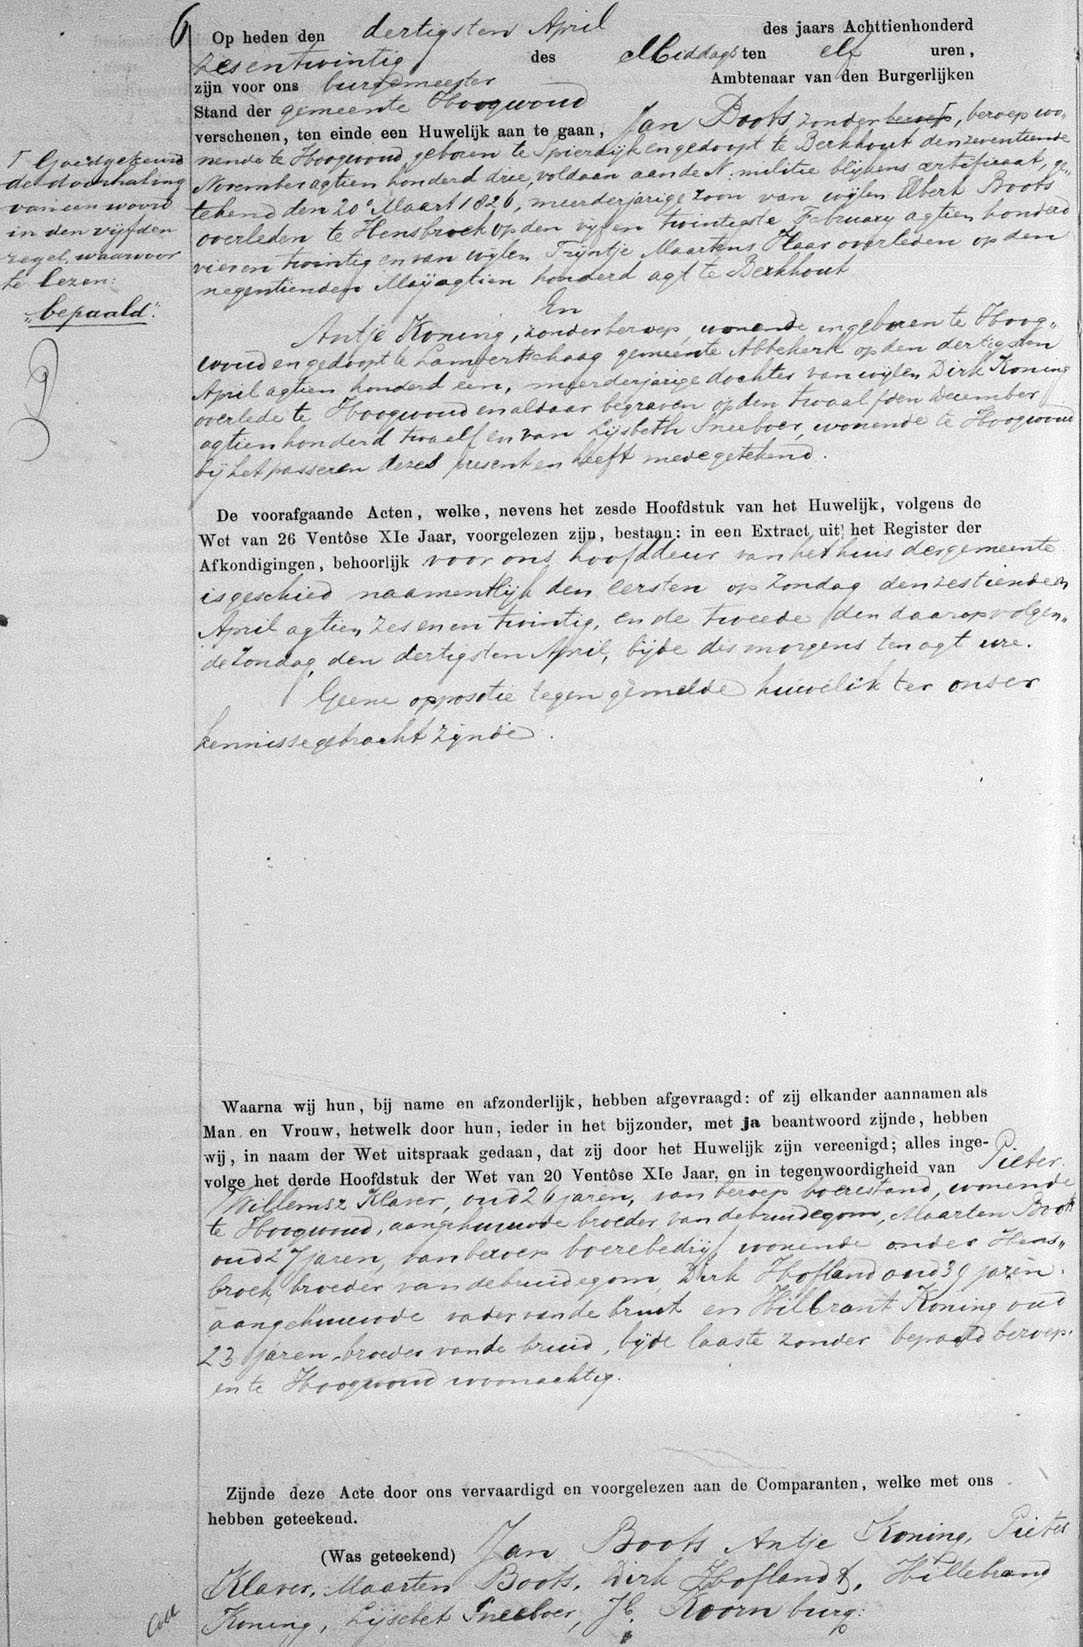 6
Op heden den dertigsten April des jaars Achttienhonderd
zesentwintig des Middags ten elf uren,
zijn voor ons burgemeester Ambtenaar van den Burgerlijken
Stand der gemeente Hoogwoud
verschenen, ten einde een Huwelijk aan te gaan, Jan Boots zonder beroep, beroep wo„
nende te Hoogwoud, geboren te Spierdijk en gedoopt te Berkhout den zeventiende
November agtien honderd drie, voldaan aan de N: militie blijkens certificaat, ge„
tekend den 20e Maart 1826, meerderjarige zoon van wijlen Elbert Boots
overleden te Hensbroek op den vijfen twintigste February agtien honderd
vier en twintig en van wijlen Trijntje Maartens Haar overleden op den
negentienden Maij agtien honderd agt te Berkhout
En
Antje Koning, zonder beroep, wonende en geboren te Hoog„
woud en gedoopt te Lambertschaag gemeente Abbekerk op den dertigsten
April agtien honderd een, meerderjarige dochter van wijlen Dirk Koning
overlede te Hoogwoud en aldaar begraven op den twaalfden December
agtien honderd twaalf en van Lijsbeth Sneeboer, wonende te Hoogwoud
bij het passeren dezes present en heeft mede getekend.
Γ Goedgekeurd
de doorhaling
van een woord
in den vijfden
regel, waarvoor
te lezen:
„bepaald".
De voorafgaande Acten, welke, nevens het zesde Hoofdstuk van het Huwelijk, volgens de
Wet van 26 Ventôse XIe Jaar, voorgelezen zijn, bestaan: in een Extract uit het Register der
Afkondigingen, behoorlijk voor ons hoofddeur van het huis der gemeente
is geschied naamentlijk den eersten op Zondag den zestienden
April agtien zes en en twintig, en de tweede den daarop volgen„
de Zondag, den dertigsten April, bijde des morgens ten agt ure.
Geene oppositie tegen gemelde huwelik ter onser
kennisse gebracht zijnde.
Waarna wij hun, bij name en afzonderlijk, hebben afgevraagd: of zij elkander aannamen als
Man en Vrouw, hetwelk door hun, ieder in het bijzonder, met ja beantwoord zijnde, hebben
wij, in naam der Wet uitspraak gedaan, dat zij door het Huwelijk zijn vereenigd; alles inge-
volge het derde Hoofdstuk der Wet van 20 Ventôse XIe Jaar, en in tegenwoordigheid van Pieter
Willemsz Klaver, oud 26 jaren, van beroep boerestand, wonende
te Hoogwoud, aangehuuwde broeder van de bruidegom, Maarten Boots
oud 27 jaren, van beroep boerebedrijf wonende onder Hens„
broek, broeder van de bruidegom, Dirk Hofland oud 39 jaren.
aangehuuwde vader van de bruit en Hilbrant Koning oud
23 jaren broeder van de bruid, bijde laaste zonder bepaald beroep.
en te Hoogwoud woonachtig.
Zijnde deze Acte door ons vervaardigd en voorgelezen aan de Comparanten, welke met ons
hebben geteekend.
(Was geteekend) Jan Boots Antje Koning, Pieter
Klaver, Maarten Boots, Dirk Hofland, Hillebrand
Koning, Lijsebet Sneeboer, Koornburg.